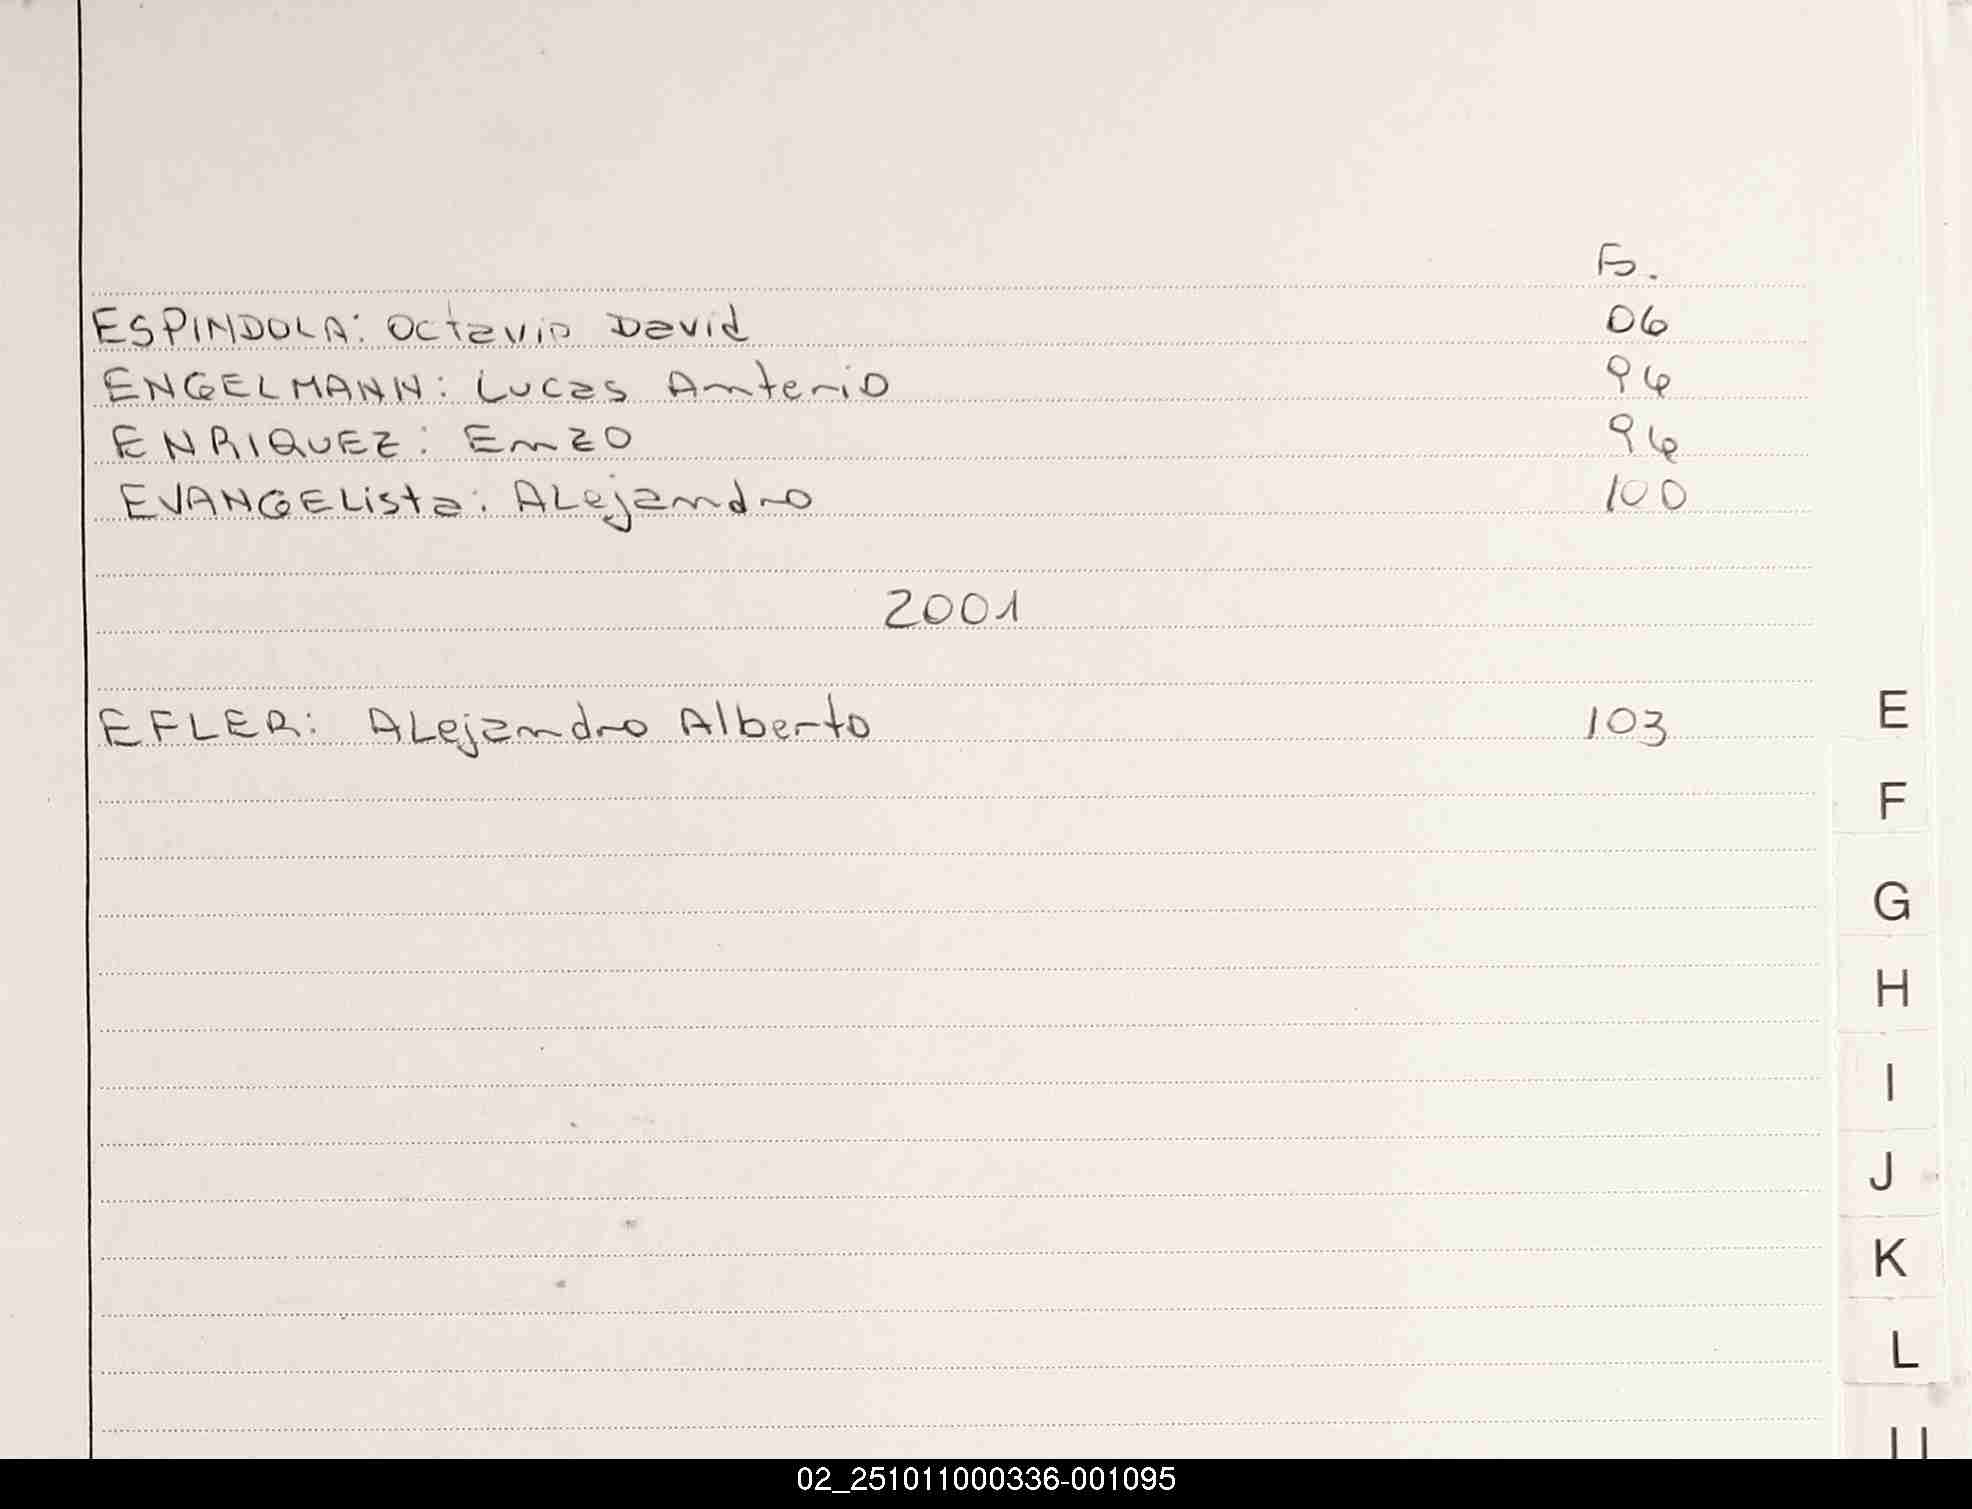 Fs.
ESPINDOLA: Octavio David 06
ENGELMANN: Lucas Anterio 96
ENRIQUEZ: Enzo 96
EVANGELista: ALejandro 100
2001
EFLER: ALejandro Alberto 103
E
F
G
H
I
J
K
L
02_251011000336-001095